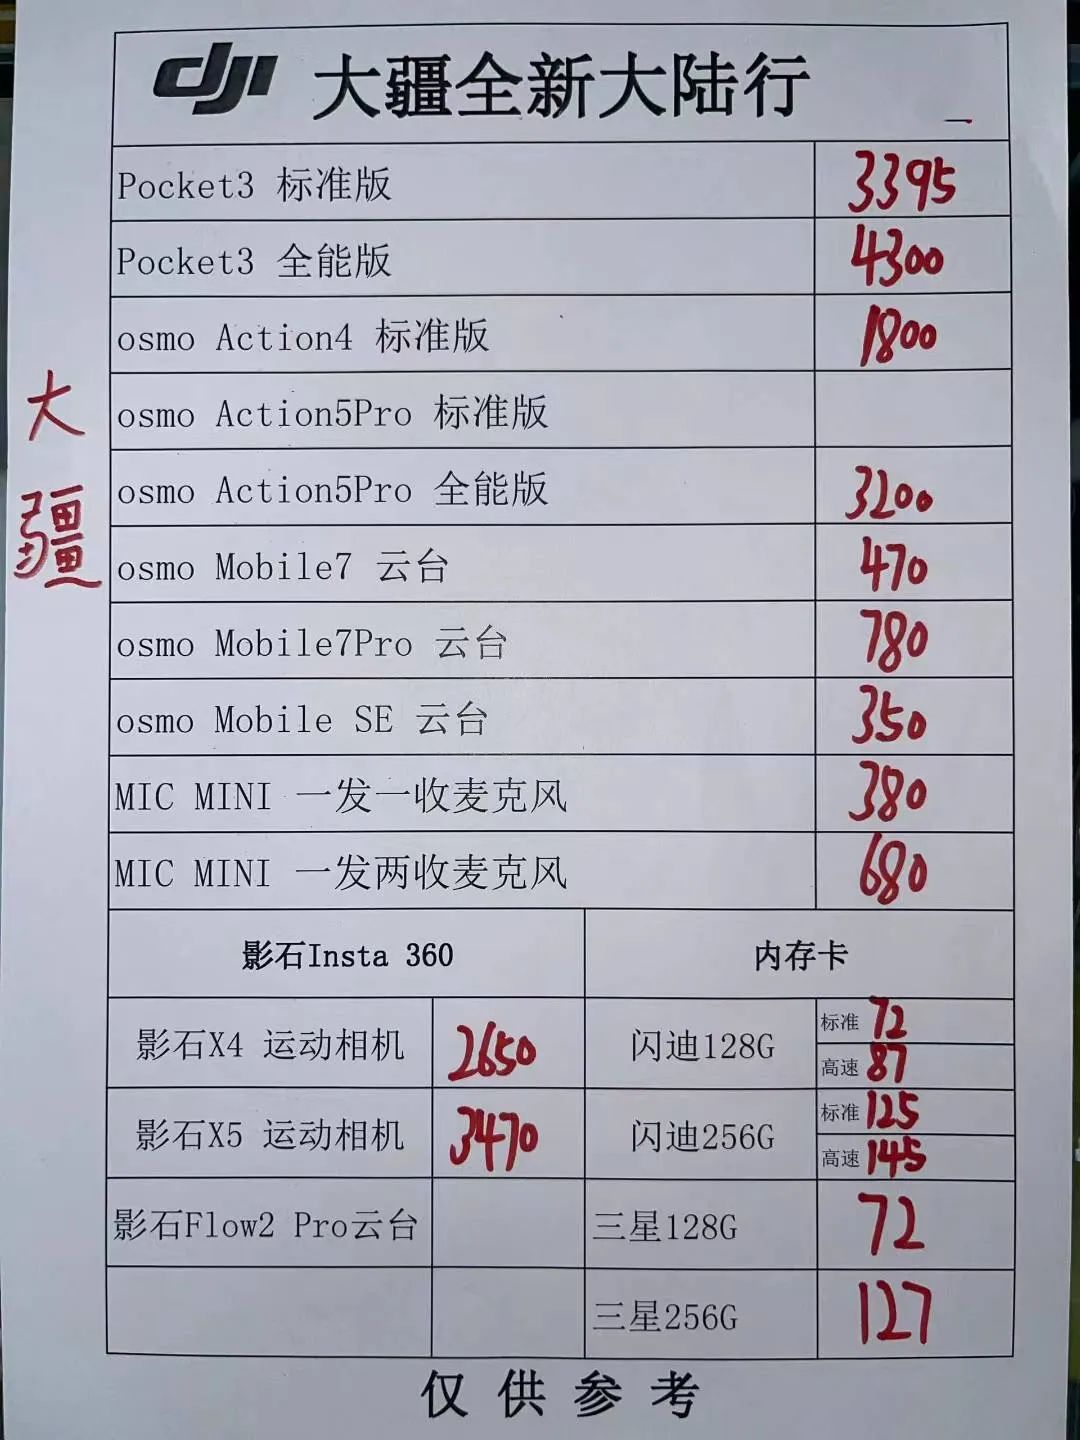 dji 大疆全新大陆行
Pocket3 标准版 3395
Pocket3 全能版 4300
osmo Action4 标准版 1800
osmo Action5Pro 标准版
osmo Action5Pro 全能版 3200
osmo Mobile7 云台 470
osmo Mobile7Pro 云台 780
osmo Mobile SE 云台 350
MIC MINI 一发一收麦克风 380
MIC MINI 一发两收麦克风 680
大疆
影石Insta 360 内存卡
影石X4 运动相机 2650 闪迪128G 标准 72
高速 87
影石X5 运动相机 3470 闪迪256G 标准 125
高速 145
影石Flow2 Pro云台 三星128G 72
三星256G 127
仅供参考